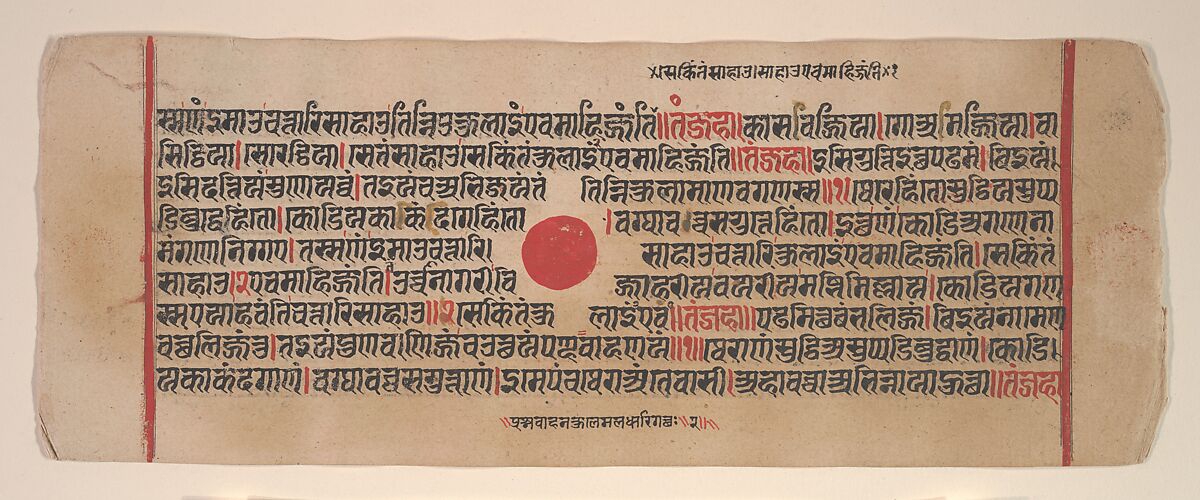 ×।सेकिंतंसाहाउ।साहाउएवमाहिज्जंति×१
स्सणंइमाउचत्तारिसाहाउतिन्निउकुलाइंएवमाहिज्जंति॥तंजहा॥कासविज्जिया।गोअमिज्जिया।वा
सिट्ठिया।सोरट्ठिया।सेतंसाहाउ।सेकिंतंकुलाइंएवमाहिज्जंति॥तंजहा॥इसिगुत्तिइत्थपढमं।बिइयं
इसिदत्तियंमुणेयव्वं।तइयंचअभिजयंतं तिन्निकुलामाणवगणस्स॥१।थेरेहिंतोसुट्ठियसुप्प
डिबुद्धेहिंतो।कोडियकाकंदएहिंतो ।वग्घावच्चसगुत्तेहिंतो।इत्थणंकोडिअगणेना
मंगणेनिग्गए।तस्सणंइमाउचत्तारि। साहाउचत्तारिकुलाइंएवमाहिज्जंति।सेकिंतं
साहाउ।२एवमाहिज्जंति।उच्चनागरीवि ज्जाहरीयवइरीयमज्झिमिल्लाय।कोडियगण
स्सएयाहवंतिचत्तारिसाहाउ॥२सेकिंतंकु लाइंएवं॥तंजहा॥पढमित्थबंभलिज्जं।बिइयंनामेण
वच्छलिज्जंतु।तइयंपुणवाणिज्जंचउत्थयंपण्हवाहणयं॥१॥थेराणंसुट्ठिअसुप्पडिबुद्धाणं।कोडि
यकाकंदगाणं।वग्घावच्चसगुत्ताणं।इमेपंचथेराअंतेवासी।अहावच्चाअभिन्नायाहुत्था॥तंजहा
॥प्रश्नवाहनकुलमलधारिगच्छः॥२॥